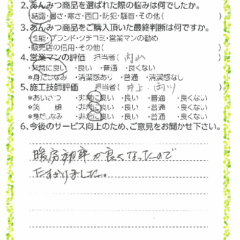 2.あんみつ商品を選ばれた際の悩みは何でしたか。
・結露・暑さ・寒さ・西日・防犯・騒音・その他(　　)
3.あんみつ商品をご購入頂いた最終判断は何ですか。
・性能・ブランド・クチコミ・営業マンの勧め
・販売店の信用・その他(
4.営業マンの評価　担当者(
・非常に良い・良い・普通・良くない
*身だしなみ・清潔感あり・普通・清潔感なし
5.施工技師評価　担当者(井上・
*あいさつ・非常に良い・良い・普通・良くない
*笑　顔・非常に良い・良い・普通・良くない
*身だしなみ・非常に良い・良い・普通・良くない
6.今後のサービス向上のため、ご意見をお聞かせ下さい。
暖房効率が良くなったので
たすかりました。